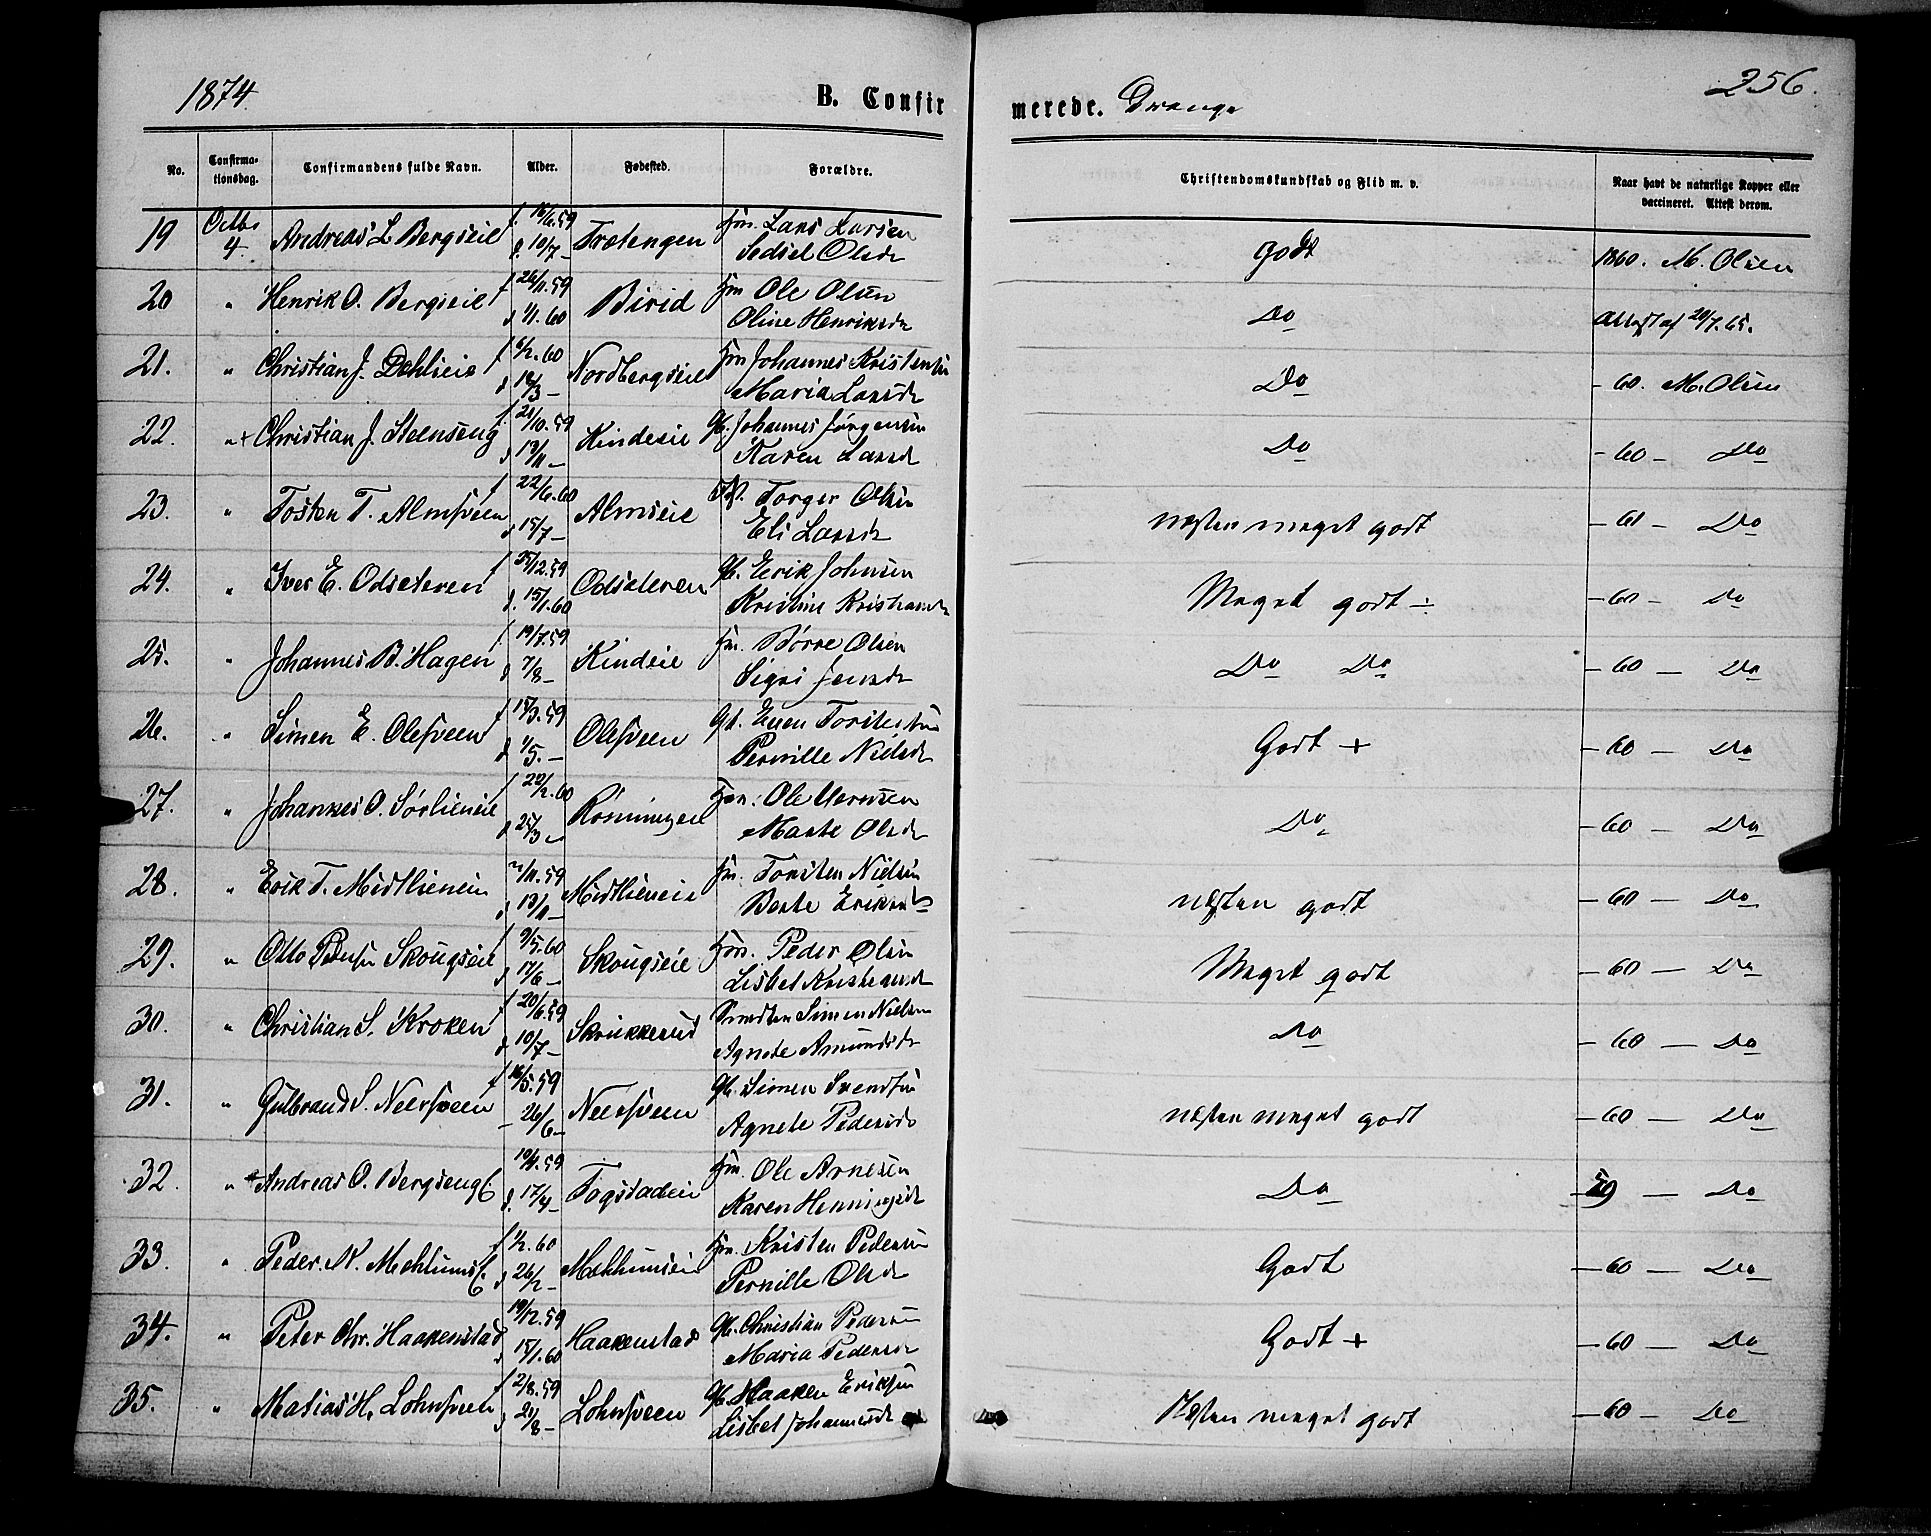 1874. B. Confirmerede. Drenge 256.
No. Confirmationsdag. Confirmandens fulde Navn. Alder. Fødested. Forældre. Christendomskundskab og Flid m. v. Naar havt de naturlige Kopper eller vaccineret. Attest derom.
19 Octbr 4. Andreas L Bergseie f. 16/6.59 Trætengen Hm. Lars Larsen godt 1860. M. Olsen
d. 10/7 – Sedsel Olsdr
20 " Henrik O. Bergseie f 26/11.59 Birid Hm Ole Olsen Do Attest af 20/7.65.
d 1/1.60 Oline Henriksdr
21. " Christian J. Dehlieie f 6/2.60 Nordbergseie Hm Johannes Kristensen Do - 60. M. Olsen
d 18/3 – Maria Larsdr
22. " + Christian J. Steinseng f. 21/10.59 Kindseie Gb. Johannes Jørgensen Do - 60 - Do
d 13/11 – Karen Larsdr
23. " Tosten T. Almsveen f 22/6.60 Almseie Torger Olsen næsten meget godt - 61 - Do
d 15/7 – Eli Larsdr
24. " Iver E. Odseteren f 25/12.59 Odseteren Gb. Eerik Johnsen Meget godt ÷ - 60 - Do
d. 15/1.60 Kristine Kristiansdr
25. " Johannes B. Hagen f. 19/7.59 Kindeie Hm. Børre Olsen Do Do - 60 - Do
d 7/8 – Sigri Jensdr
26. " Simen E. Olesveen f 15/3.59 Olesveen Gb. Even Torstensen Godt + - 60 - Do
d 1/5. – Pernille Nielsdr
27. " Johannes O. Sørlieneie f 22/2.60 Rønningen Hm. Ole Do - 60 - Do
d 25/3 – Marte Olsdr
28. " Erik T. Midtlieneie 2/11.59 Midtlieneie Hm. Torsten Nielsen næsten godt - 60 - Do
d 13/11 – Berte Eriksdr
29. " Otto Pedersen Skougseie f 9/5.60 Skougseie Hm. Peder Olsen Meget godt - 60 - Do
d 17/6 – Lisbet Kristiansdr
30. " Christian S. Kroken f 20/6.59 Skrukkerud Simen Nielsen Do - 60 - Do
d 10/7 – Agnete Amundsdr
31. " Gulbrand S. Neersveen f 16/5.59 Neersveen Gb. Simen Svendsen næsten meget godt - 60 - Do
– 26/6 – Agnete Pedersdr
32. " + Andreas O. Bergseng 10/4.59 Fogstadeie Hm. Ole Arnesen Do - 59 - Do
d. 17/4 – Karen Henningsdr
33. " Peder K. Mehlums f 1/2.60 Mehlumseie Hm. Kristen Pedersen Godt - 60 - Do
d 26/2 – Pernille Olsdr
34. " Peter Chr. Haakenstad 19/12.59 Haakenstad Gb. Christian Pedersen Godt + - 60 - Do
d 15/1.60 Maria Pedersdr
35. " Matias H. Lohnsveen f 2/8.59 Lohnsveen Gb. Haaken Eriksen Næsten meget godt - 60 - Do
d 21/8 – Lisbet Johannesdr